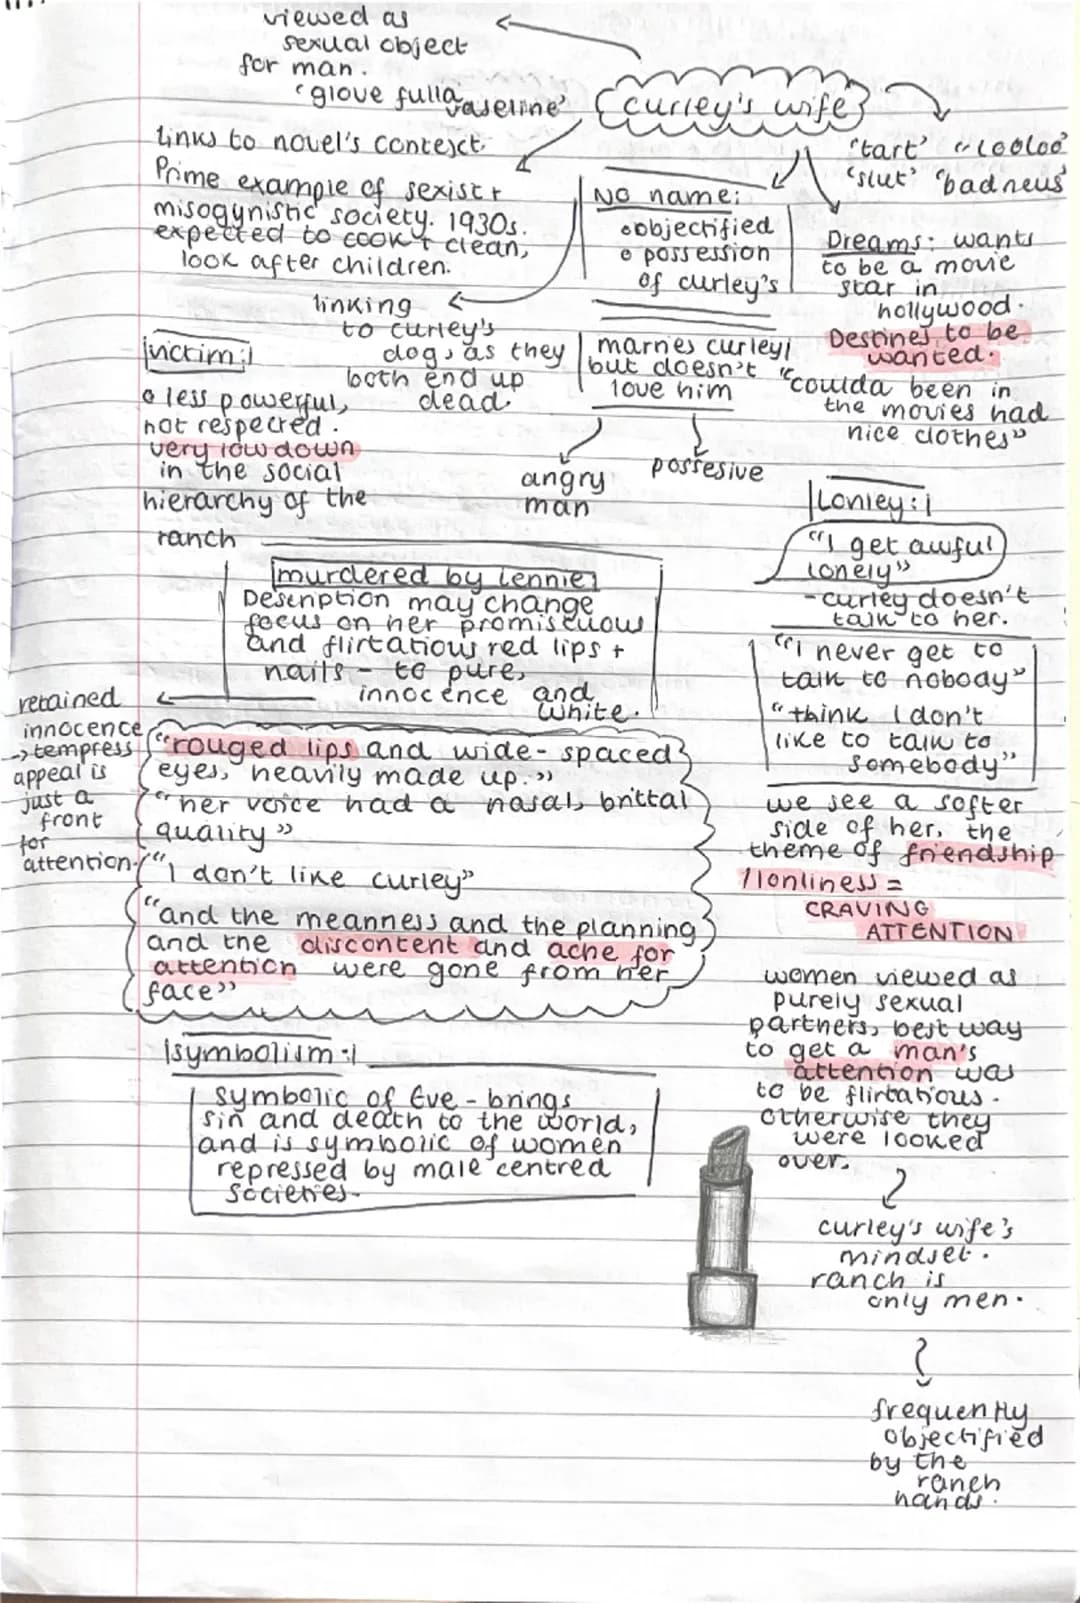 viewed as
sexual object
for man.
'glove fulla
vaseline'
curley's wife
'tart' "looloo'
'slut' 'bad neus'
links to novel's context.
Prime example of sexist +
misogynistic society. 1930s.
expected to cook + clean,
look after children.
No name:
objectified
possession
of curley's
Dreams: wants
to be a movie
star in
hollywood.
Destines to be
wanted.
"coulda been in
the movies had
nice clothes"
linking
to curley's
dog, as they
both end up
dead.
marries curley
but doesn't
love him
angry
man
possesive
victim:
a less powerful,
not respected.
very low down
in the social
hierarchy of the
ranch
Lonley:
"I get awful
lonely"
- curley doesn't
talk to her.
"I never get to
talk to nobody"
"think I don't
like to talk to
somebody"
we see a softer
side of her, the
theme of friendship
/lonliness =
CRAVING
ATTENTION
murdered by Lennie
Description may change
focus on her promiscuous
and flirtatious red lips +
nails - to pure,
innocence and
white.
retained
innocence
-> tempress
appeal is
just a
front
for
attention.
"rouged lips and wide-spaced
eyes, heavily made up."
"her voice had a nasal, brittal
quality"
"I don't like curley"
"and the meanness and the planning
and the discontent and ache for
attention were gone from her
face"
women viewed as
purely sexual
partners, best way
to get a man's
attention was
to be flirtatious.
otherwise they
were looked
over.
curley's wife's
mindset.
ranch is
only men.
frequently
objectified
by the
ranch
hands.
symbolism:
symbolic of Eve - brings
sin and death to the world,
and is symbolic of women
repressed by male centred
societies.